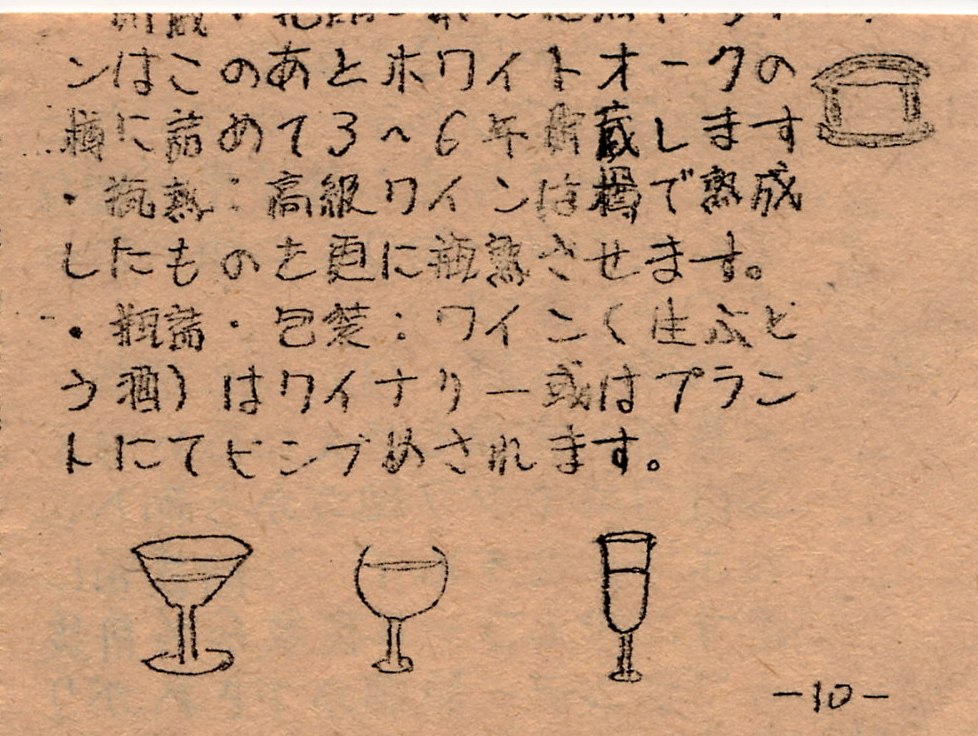 ンはこのあとホワイトオークの
樽に詰めて3~6年貯蔵します
・瓶熟:高級ワインは樽で熟成
したものを更に瓶熟させます。
・瓶詰・包装:ワイン(生ぶど
う酒)はワイナリー或はプラン
トにてビンヅめされます。
-10-